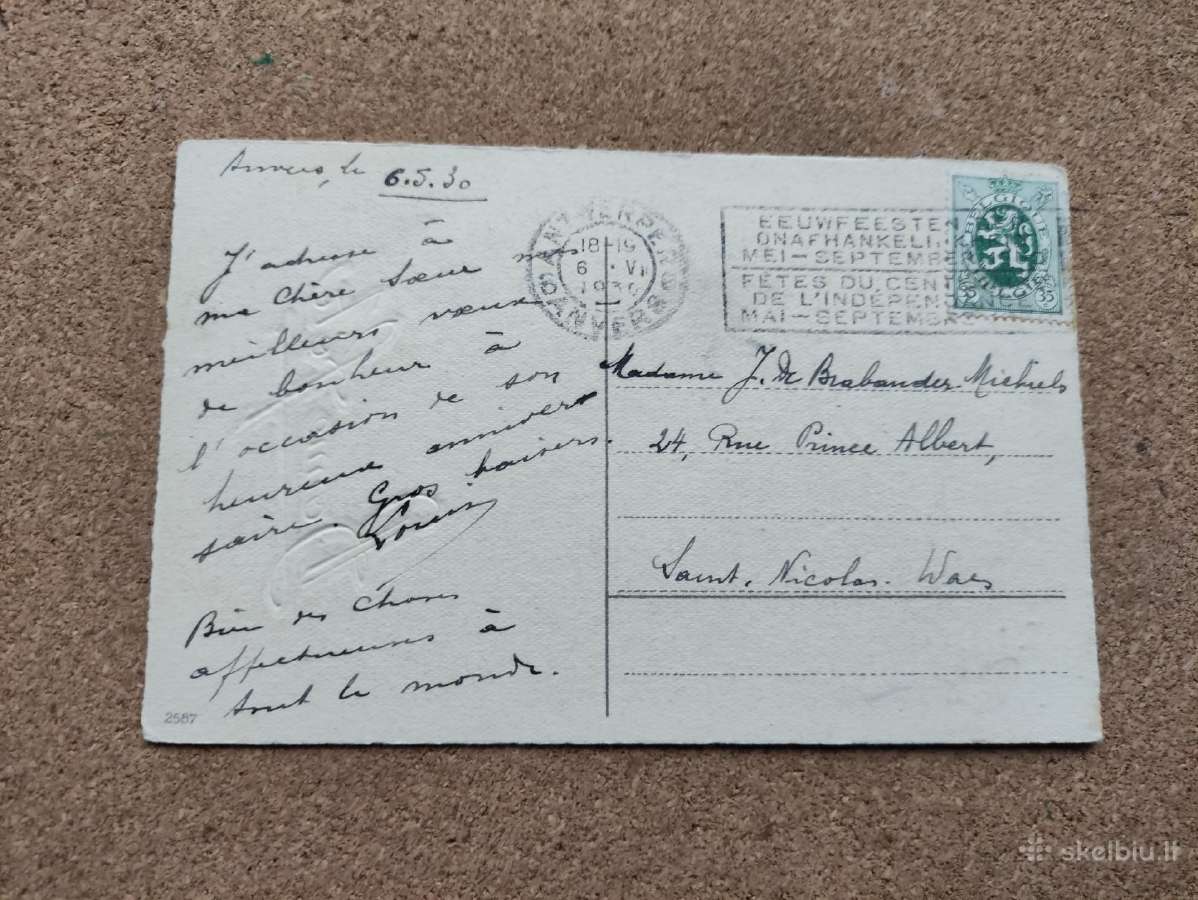 Anvers, le 6.5.30
J'adresse à
ma chère Sœur mes
meilleurs vœux
de bonheur à
l'occasion de son
heureux anniver
saire. Gros baisers.
Louis
Bien des choses
affectueuses à
tout le monde.
2587
ANTWERPEN
18-19
6 · VI
1930
ANVERS
EEUWFEESTE
ONAFHANKELIJK
MEI-SEPTEMBER
FÊTES DU CENT
DE L'INDÉPEN
MAI-SEPTEMBR
BELGIQUE
35 35
BELGIË
Madame J. De Brabander-Michiels
24, Rue Prince Albert,
Saint-Nicolas-Waes
skelbiu.lt